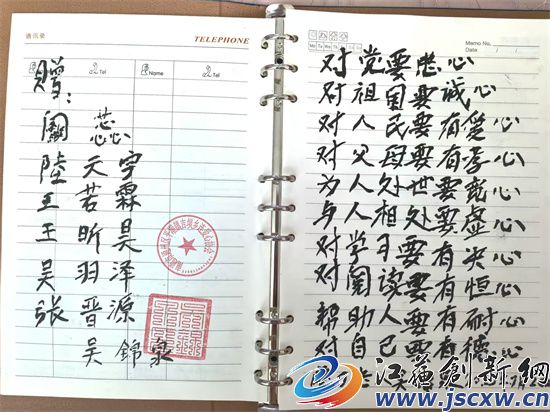 通讯录
TELEPHONE
Tel
Name
Tel
赠：
阚蕊
陸天宇
王若霖
王昕昊
吴羽泽
张晋源
吴錦泉
Memo No.
Mo Tu We Th Fr Sa Su
Date
对党要忠心
对祖国要诚心
对人民要有爱心
对父母要有孝心
为人处世要宽心
与人相处要虚心
对学习要有决心
对阅读要有恒心
帮助人要有耐心
对自己要有德心
江苏创新网
www.jscxw.cn